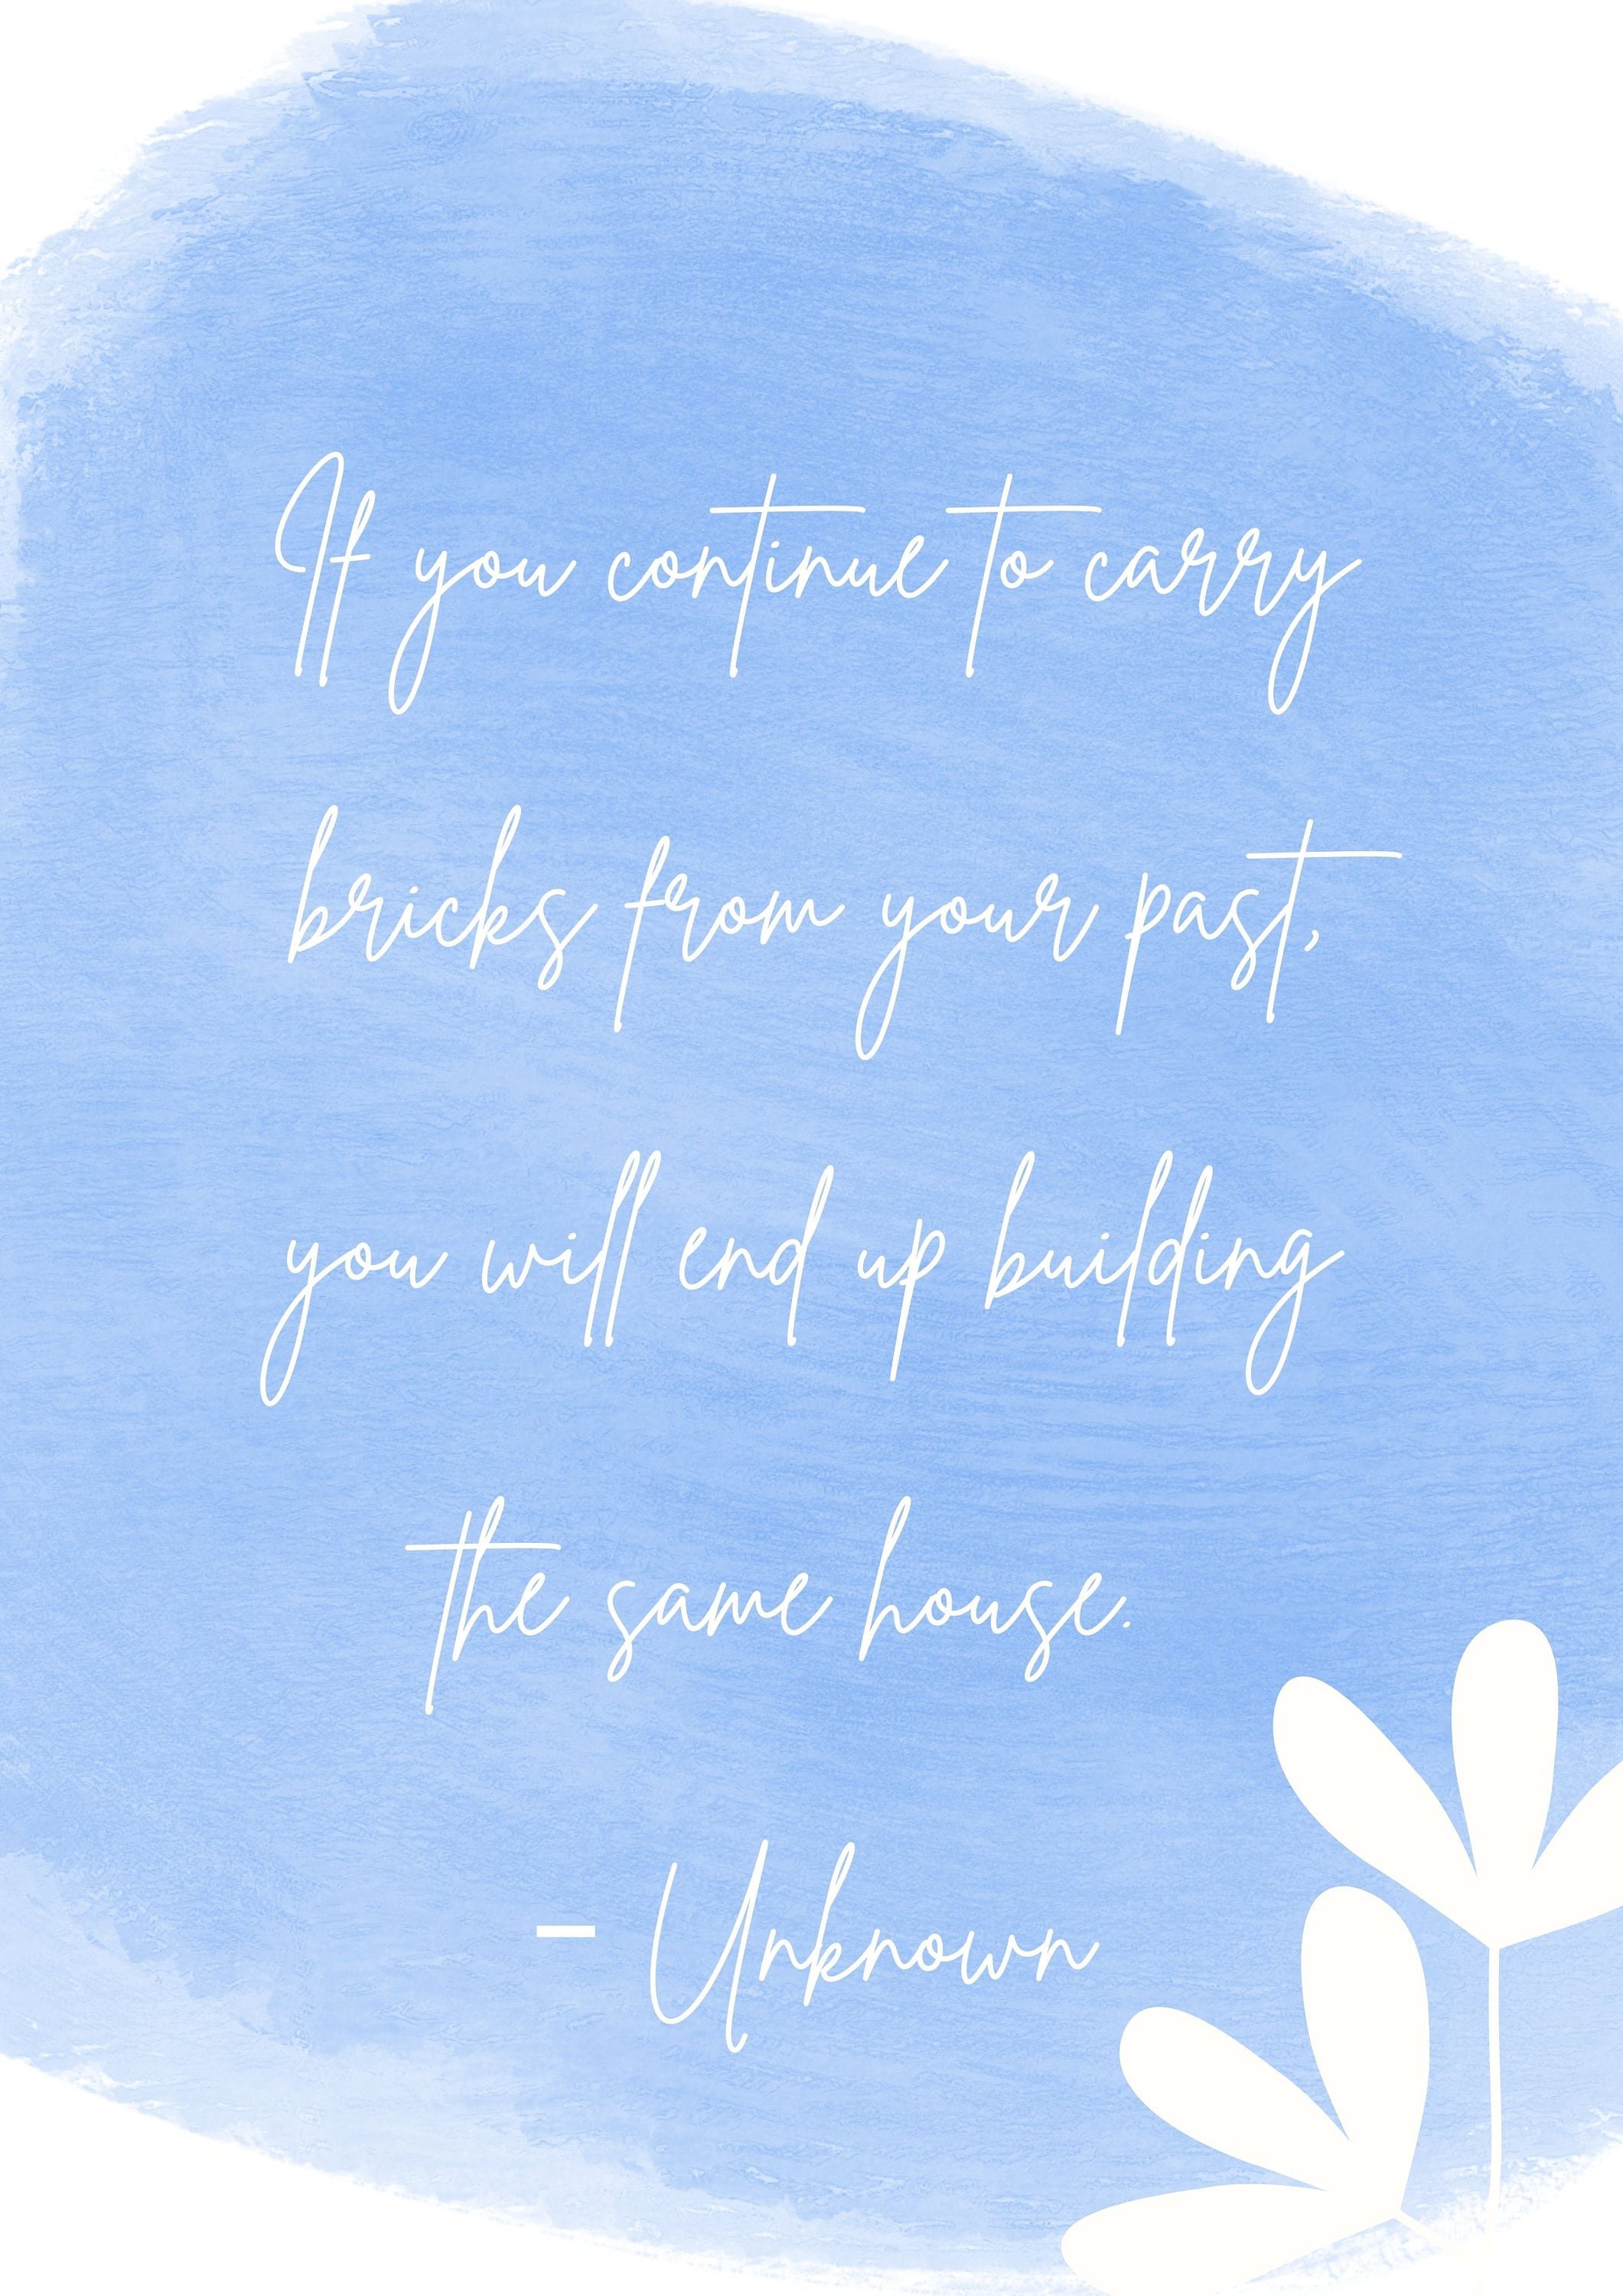 If you continue to carry
bricks from your past,
you will end up building
the same house.
- Unknown